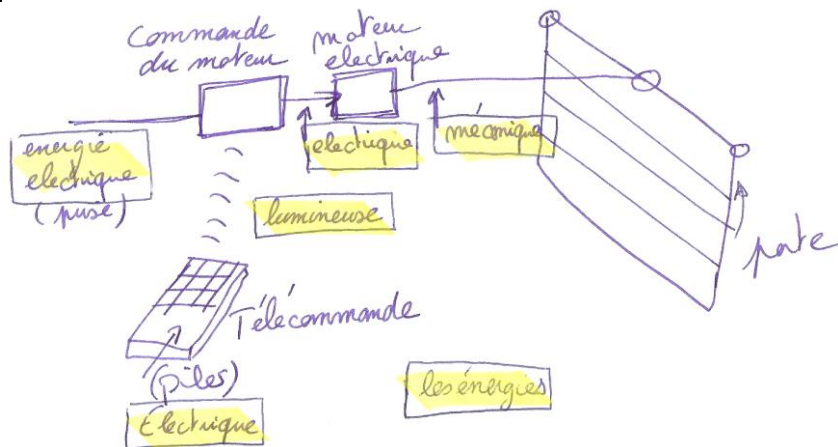 Commande
du moteur
moteur
electrique
energie
electrique
(prise)
electrique
mécanique
lumineuse
porte
Télécommande
(piles)
Électrique
les énergies